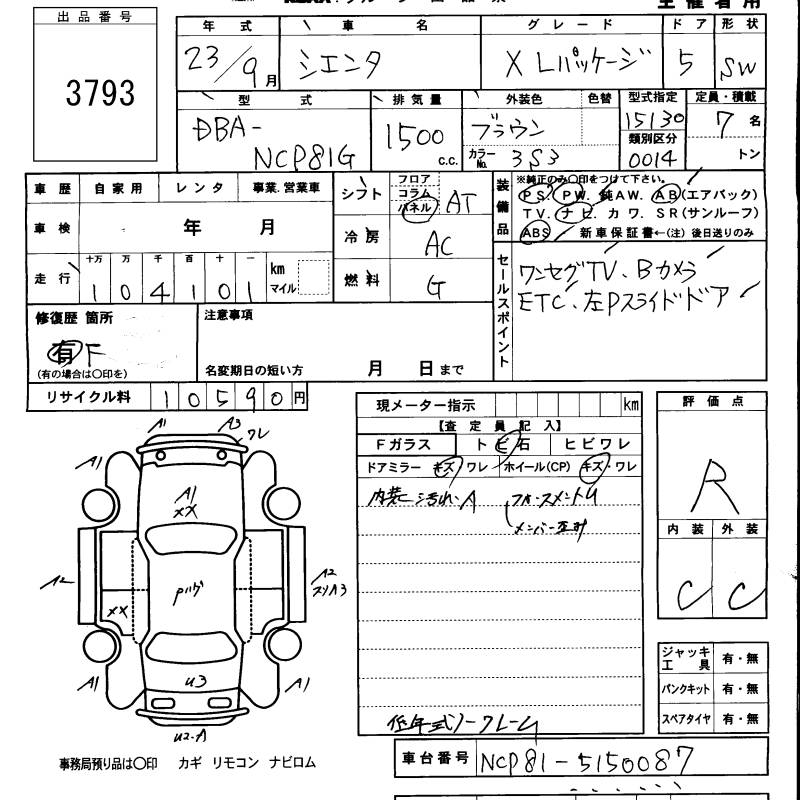 出品番号
3793
年式 車名 グレード ドア 形状
23/9月 シエンタ X Lパッケージ 5 SW
型式 排気量 外装色 色替 型式指定 定員・積載
DBA-NCP81G 1500 c.c. ブラウン 15130 7名
カラーNo. 3S3 類別区分 0014 トン
車歴 自家用 レンタ 事業.営業車
車検 年 月
走行 十万 万 千 百 十 一 km マイル
1 0 4 1 0 1
シフト フロア コラム パネル AT
冷房 AC
燃料 G
装備品
※純正のみ○印をつけて下さい。
PS. PW. 純AW. AB(エアバック)
TV. ナビ. カワ. SR(サンルーフ)
ABS 新車保証書←(注) 後日送りのみ
セールスポイント
ワンセグTV、Bカメラ
ETC、左Pスライドドア
修復歴 箇所
有 F
(有の場合は○印を)
注意事項
名変期日の短い方 月 日まで
リサイクル料 10590円
現メーター指示 km
【査定員記入】
Fガラス トビ石 ヒビワレ
ドアミラー キズ・ワレ ホイール(CP) キズ・ワレ
内装汚れ・A
メンバー
評価点
R
内装 外装
C C
A1 A3 ワレ
A1 A1
A1
XX
A2 A2
XX
U3
A1 A1
U2-A
ジャッキ工具 有・無
パンクキット 有・無
スペアタイヤ 有・無
低年式ノークレーム
事務局預り品は○印 カギ リモコン ナビロム
車台番号 NCP81-5150087